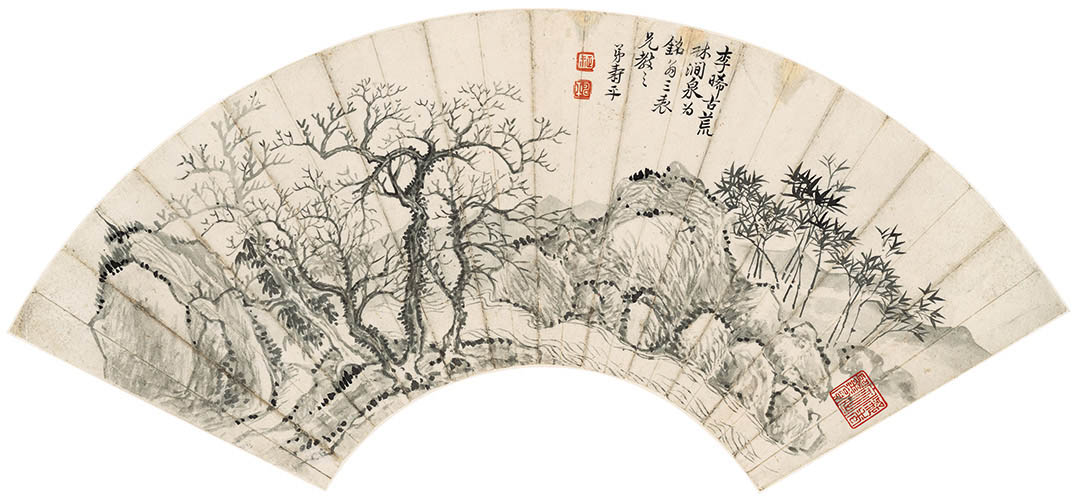 李晞古荒
林澗泉为
銘翁三表
兄教之
弟壽平